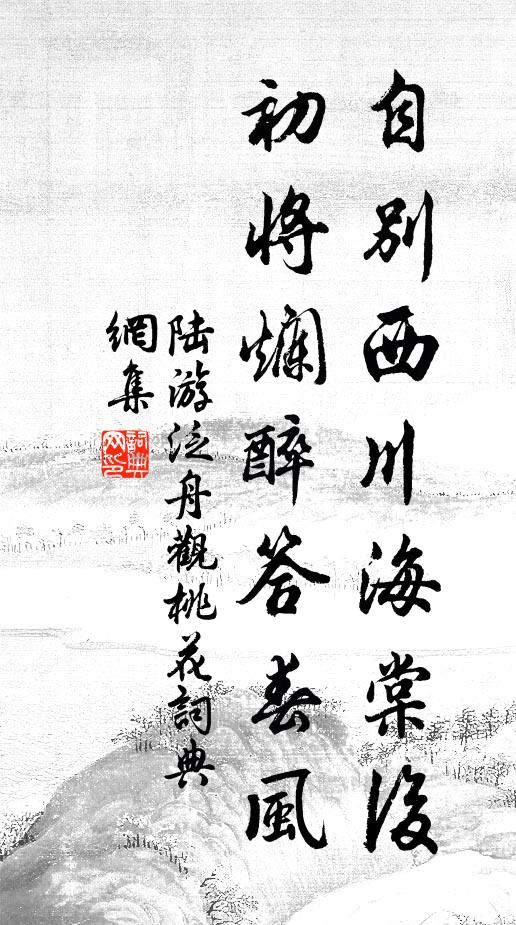 自別西川海棠後
初將爛醉答春風
陸游泛舟觀桃花詞典
網集
詞典
网印